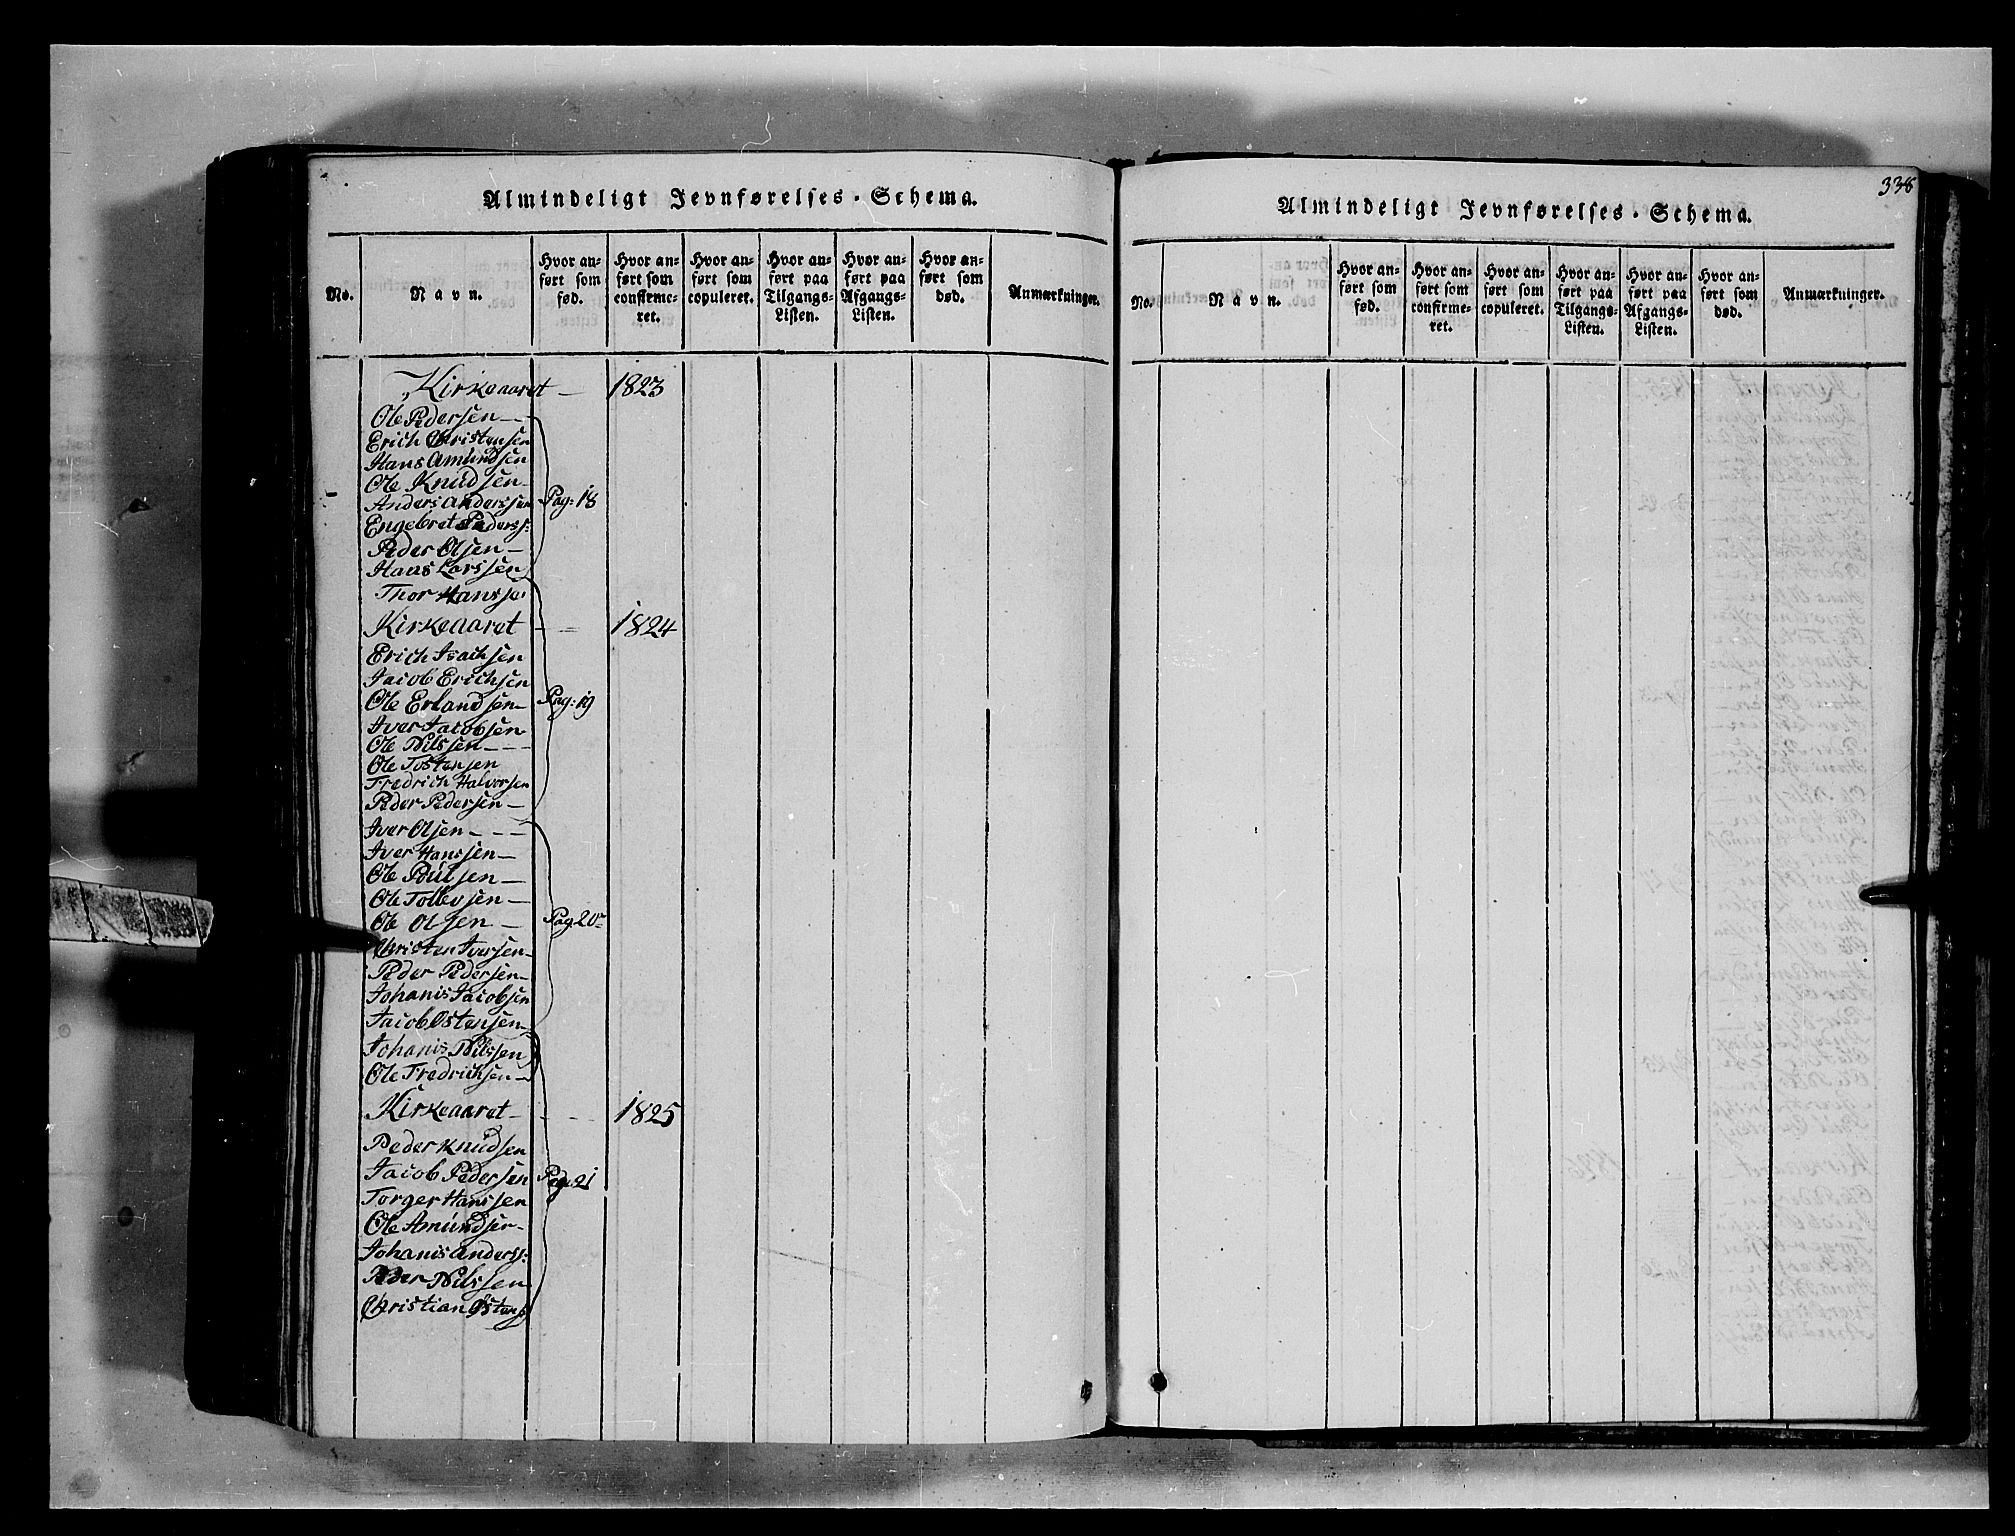 Almindeligt Jevnførelses-Schema.
No.
Navn.
Hvor an-
ført som
fød.
Hvor an-
ført som
confirme-
ret.
Hvor an-
ført som
copuleret.
Hvor an-
ført paa
Tilgangs-
Listen.
Hvor an-
ført paa
Afgangs-
Listen.
Hvor an-
ført som
død.
Anmærkninger.
Kirkeaaret — 1823
Ole Pedersen —
Erich Christensen
Hans Amundsen
Ole Knudsen
Anders Anderssen Pag: 18
Engebret Peders:
Peder Olsen —
Hans Larssen
Thor Hanssen
Kirkeaaret — 1824
Erich Isachsen
Jacob Erichsen
Ole Erlandsen Pag: 19
Iver Jacobsen
Ole Nilssen — — —
Ole Tostensen
Fredrich Halvorsen
Peder Pedersen —
Iver Olsen — — —
Iver Hanssen —
Ole Poulsen —
Ole Tollevsen —
Ole Olsen — Pag. 20
Christen Iversen
Peder Pedersen
Johanis Jacobsen
Jacob Ostensen
Johanis Nilssen
Ole Fredrichsen —
Kirkeaaret — 1825
Peder Knudsen
Jacob Pedersen Pag. 21
Torger Hanssen
Ole Amundsen
Johanis Anderss:
Peder Nilssen
Christian Ostens
338
Almindeligt Jevnførelses-Schema.
No.
Navn.
Hvor an-
ført som
fød.
Hvor an-
ført som
confirme-
ret.
Hvor an-
ført som
copuleret.
Hvor an-
ført paa
Tilgangs-
Listen.
Hvor an-
ført paa
Afgangs-
Listen.
Hvor an-
ført som
død.
Anmærkninger.